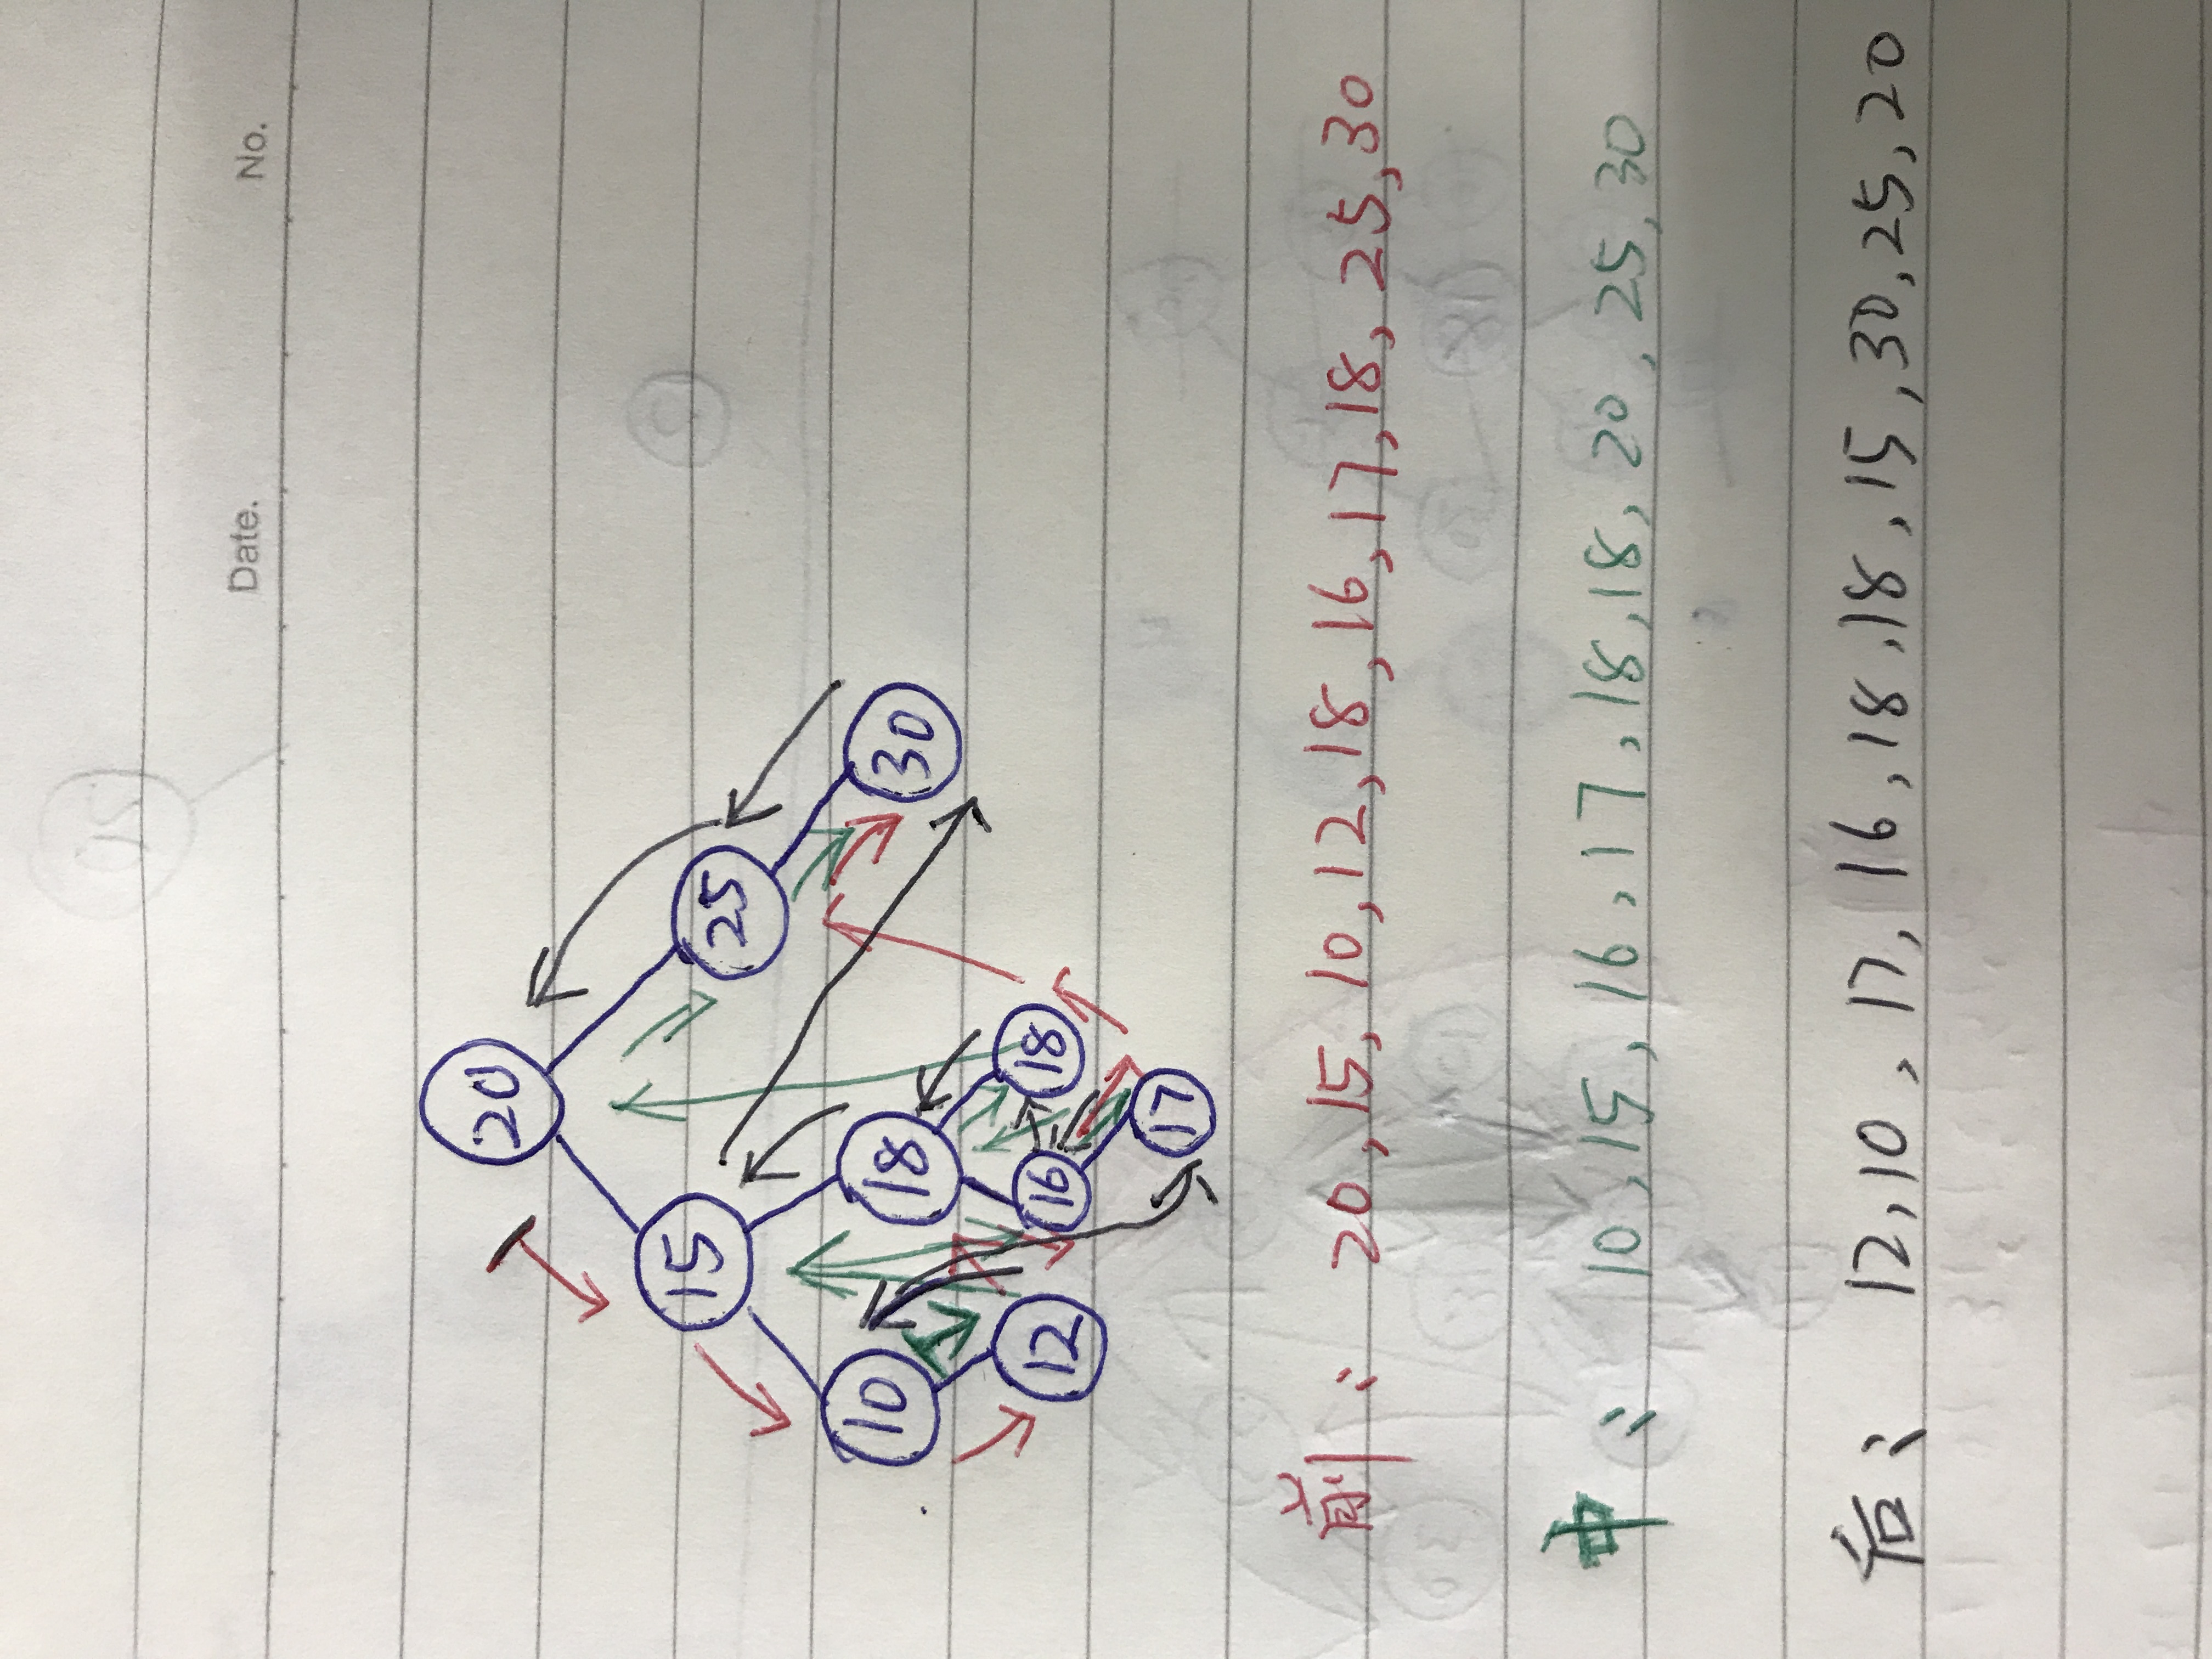 Date. No.
20
15
25
10
18
30
12
16
18
17
前: 20, 15, 10, 12, 18, 16, 17, 18, 25, 30
中: 10, 15, 16, 17, 18, 18, 20, 25, 30
后: 12, 10, 17, 16, 18, 18, 15, 30, 25, 20